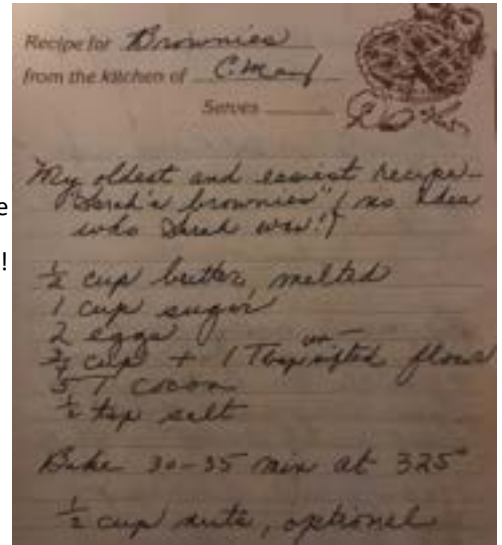 Recipe for Brownies
from the kitchen of C.
Serves
My oldest and easiest recipe -
"Sarah's brownies" (no idea
who Sarah was!)
e
!
1/2 cup butter, melted
1 cup sugar
2 eggs
un-
3/4 cup + 1 Tbsp sifted flour
5 T cocoa
1/2 tsp salt
Bake 30-35 min at 325°
1/2 cup nuts, optional